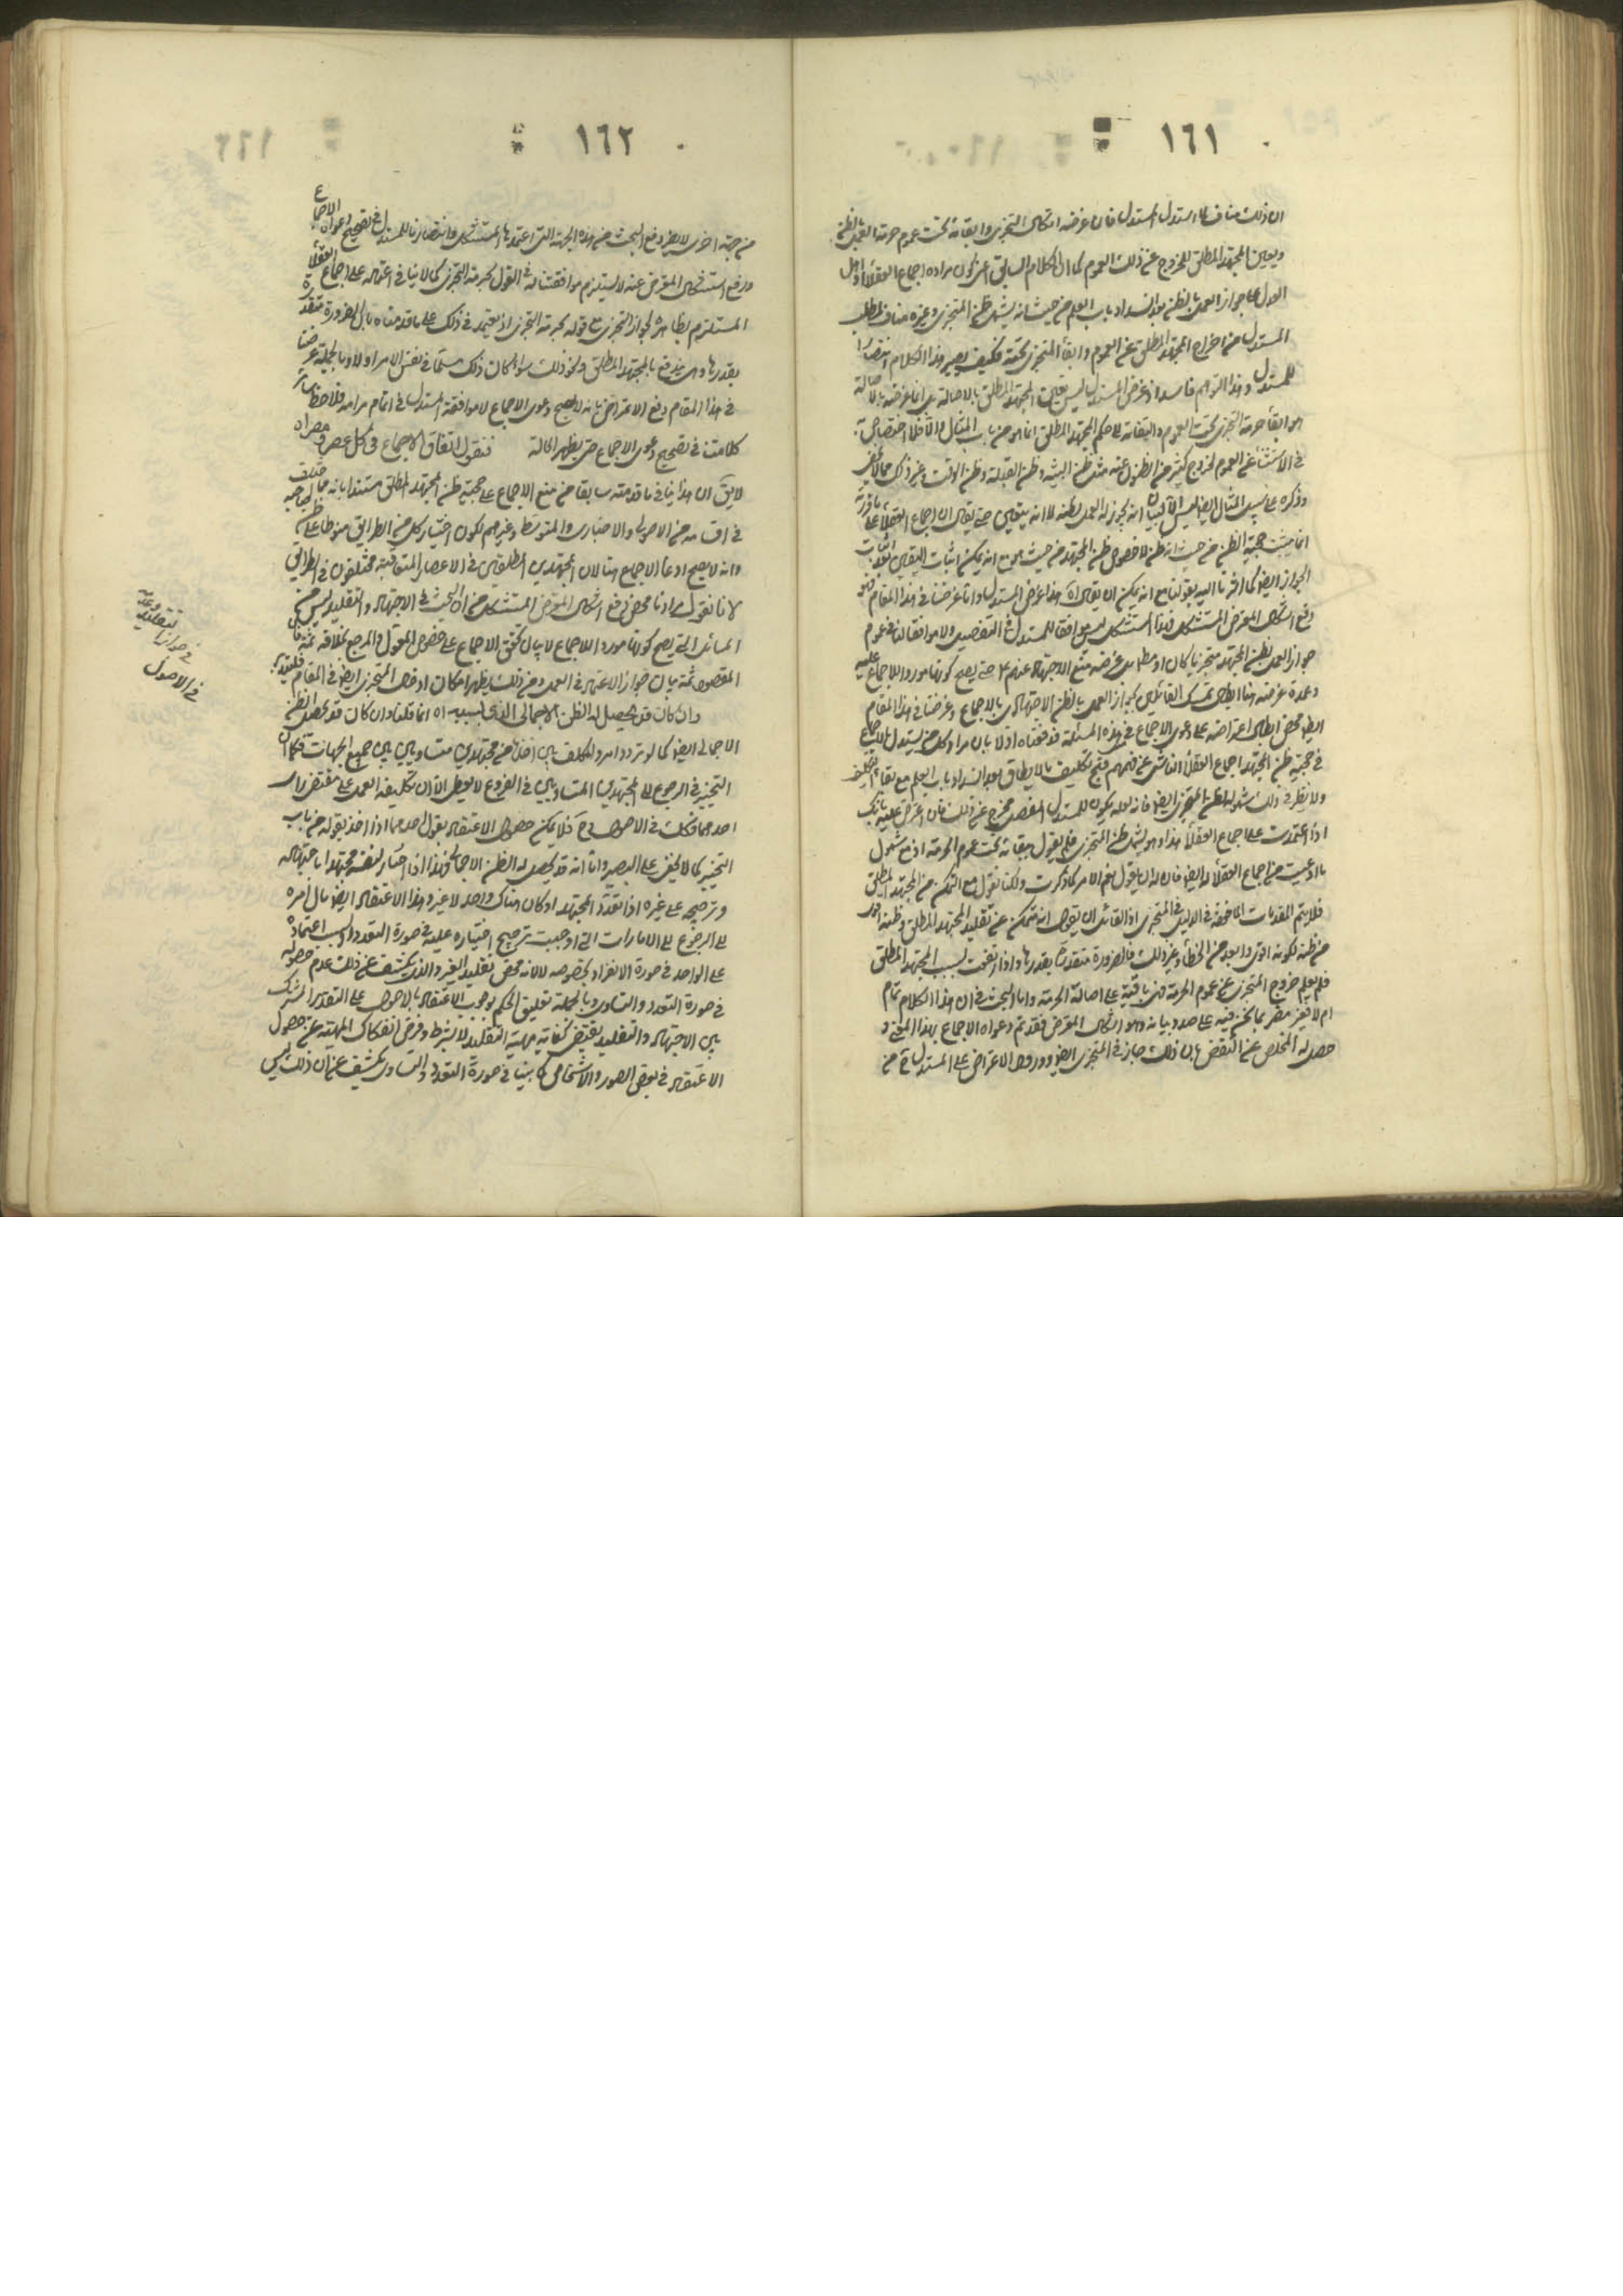 ١٦١
ان ذلك مناف لما استدل المستدل فان غرضه امكان التجزى وابقائه تحت عموم حرمة العمل بالظن
ويعين المجتهد المطلق للخروج عن ذلك العموم كما ان الكلام السابق اعنى كون مراده اجماع العقلاء واهل
العدل على جواز العمل بالظن بعد انسداد باب العلم من حيث انه يشمل ظن المتجزى وغيره مناف لمطلب
المستدل من اخراج المجتهد المطلق عن العموم وابقاء المتجزى تحته فكيف يصير هذا الكلام انتصارا
للمستدل وهذا التوهم فاسد اذ غرض المستدل ليس تعيين المجتهد المطلق بالاصالة بل انما غرضه بالاصالة
هو ابقاء حرمة التجزى تحت العموم
فى الاستثناء عن العموم لخروج كثير من الظنون عنه مثل ظن البينة وظن القبلة وظن الوقت وغير ذلك مما لا يخفى
انما يثبت حجية الظن من حيث انه ظن لا خصوص ظن المجتهد من حيث هو مع انه يمكن اثبات
الجواز ايضا كما اشرنا اليه بقولنا مع انه يمكن ان يقال اه هذا غرض المستدل واما غرضنا فى هذا المقام فهو
دفع اشكال المعترض المستشكل
جواز العمل بظن المجتهد متجزيا كان او مطلقا
وعمدة غرضه هنا ابطال تمسك القائلين بجواز العمل بالظن الاجتهادى بالاجماع وغرضنا فى هذا المقام
ايضا محض ابطال اعتراضه على دعوى الاجماع فى هذه المسئلة فدفعناه اولا بان مراد كل من يستدل بالاجماع
فى حجية ظن المجتهد اجماع العقلاء الناشى عن فهمهم قبح تكليف ما لا يطاق بعد انسداد باب العلم مع بقاء التكليف
ولا نظر فى ذلك
اذا اعتمدت على اجماع العقلاء فهذا وهو يشمل ظن المتجزى فلم يقول ببقائه تحت عموم الحرمة اذ مع شمول
ما ادعيت من اجماع العقلاء له ايضا فان له ان يقول نعم الامر كما ذكرت ولكنا نقول مع التمكن من المجتهد المطلق
فلا يتم المقدمات الماخوذة فى الدليل فى المتجزى اذ القائل ان يقول انه متمكن عن تقليد المجتهد المطلق وظنه اقوى
من ظنه لكونه اقوى وابعد من الخطاء وغير ذلك فالضرورة تتقدر بقدرها واذا ارتفعت بسبب المجتهد المطلق
فلم يعلم خروج المتجزى عن عموم الحرمة فهى باقية على اصالة الحرمة واما البحث فى ان هذا الكلام تمام
ام لا فغير مضر بما نحن فيه على صدد بيانه وهو اشكال المعترض فقد تم دعواه الاجماع بهذا المعنى و
حصل له المخلص عن النقض بان ذلك جاز فى المتجزى ايضا وورود الاعتراض على المستدل من
١٦٢
من جهة اخرى لا يضر دفع البحث من هذه الجهة التى اعتمدها المستشكل فانتصارنا للمستدل فى تصحيح دعواه الاجماع
ورفع استشكال المعترض عنه لا يستلزم موافقتنا له فى القول بحرمة التجزى كما لا ينافى اعتماله على اجماع العقلاء
المستلزم بظاهره لجواز التجزى مع قوله بحرمة التجزى اذ يعتمد فى ذلك على ما قدمناه بان الضرورة تتقدر
بقدرها وهى يندفع بالمجتهد المطلق ونحو ذلك سواء كان ذلك مسلما فى نفس الامر اولا وبالجملة غرضنا
فى هذا المقام دفع الاعتراض بانه لا يصح دعوى الاجماع لا موافقة المستدل فى اتمام مرامه فلاحظ سائر
كلماتنا فى تصحيح دعوى الاجماع حتى يظهر الحالة فنقول اتفاق الاجماع فى كل عصر ومصر اه
لا يق ان هذا ينافى ما قدمته سابقا من منع الاجماع على حجية ظن المجتهد المطلق مستندا بانه مما
فى اقسامه من الاصولى والاخبارى والمتوسط وغيرهم لكون اختيار كل من الطرايق
وانه لا يصح ادعاء الاجماع هنا لان المجتهدين المطلقين فى الاعصار المتعاقبة مختلفون فى الطرايق
لانا نقول مرادنا محض رفع اشكال المعترض المستشكل من ان البحث فى الاجتهاد والتقليد ليس من
المسائل التى يصح كونها مورد الاجماع لا بيان تحقق الاجماع على خصوص
المقصود ثمة بيان جواز الاعتماد فى العمل ومن ذلك يظهر امكان
وان كان قد يحصل له الظن الاجمالى الذى بسببه اه انما قلنا وان كان قد يحصل الظن
الاجمالى ايضا كما لو تردد امر المكلف بين اخذها من مجتهدين متساويين من جميع الجهات فكما ان
التخيير فى الرجوع الى المجتهدين المتساويين فى الفروع لا يعطى الا ان تكليفه العمل على مقتضى راى
احدهما فكذلك فى الاصول فح فلا يمكن حصول الاعتقاد بقول احدهما اذا اخذ بقوله من باب
التخيير كما لا يخفى على البصير واما انه قد يحصل له الظن الاجمالى فهذا اذا اختار لنفسه مجتهدا باجتهاده
وترجيحه على غيره اذا تعدد المجتهد او كان هناك واحد لا غير وهذا الاعتقاد ايضا مآل امره
الى الرجوع الى الامارات التى اوجبت ترجيح اختياره عليه فى صورة التعدد او لسبب اعتماده
على الواحد فى صورة الانفراد بخصوصه لا لانه محض تقليد الغير والذى يكشف عن ذلك عدم حصوله
فى صورة التعدد والتساوى وبالجملة تعليق الحكم بوجوب الاعتقاد بالاصول على القدر المشترك
بين الاجتهاد والتقليد يقتضى كفاية مهية التقليد لا بشرط وفرض انفكاك المهية عن حصول
الاعتقاد فى بعض الصور والاشخاص كما بينا فى صورة التعدد والتساوى يكشف عن ان ذلك ليس
فى جواز التقليد وعدمه
فى الاصول